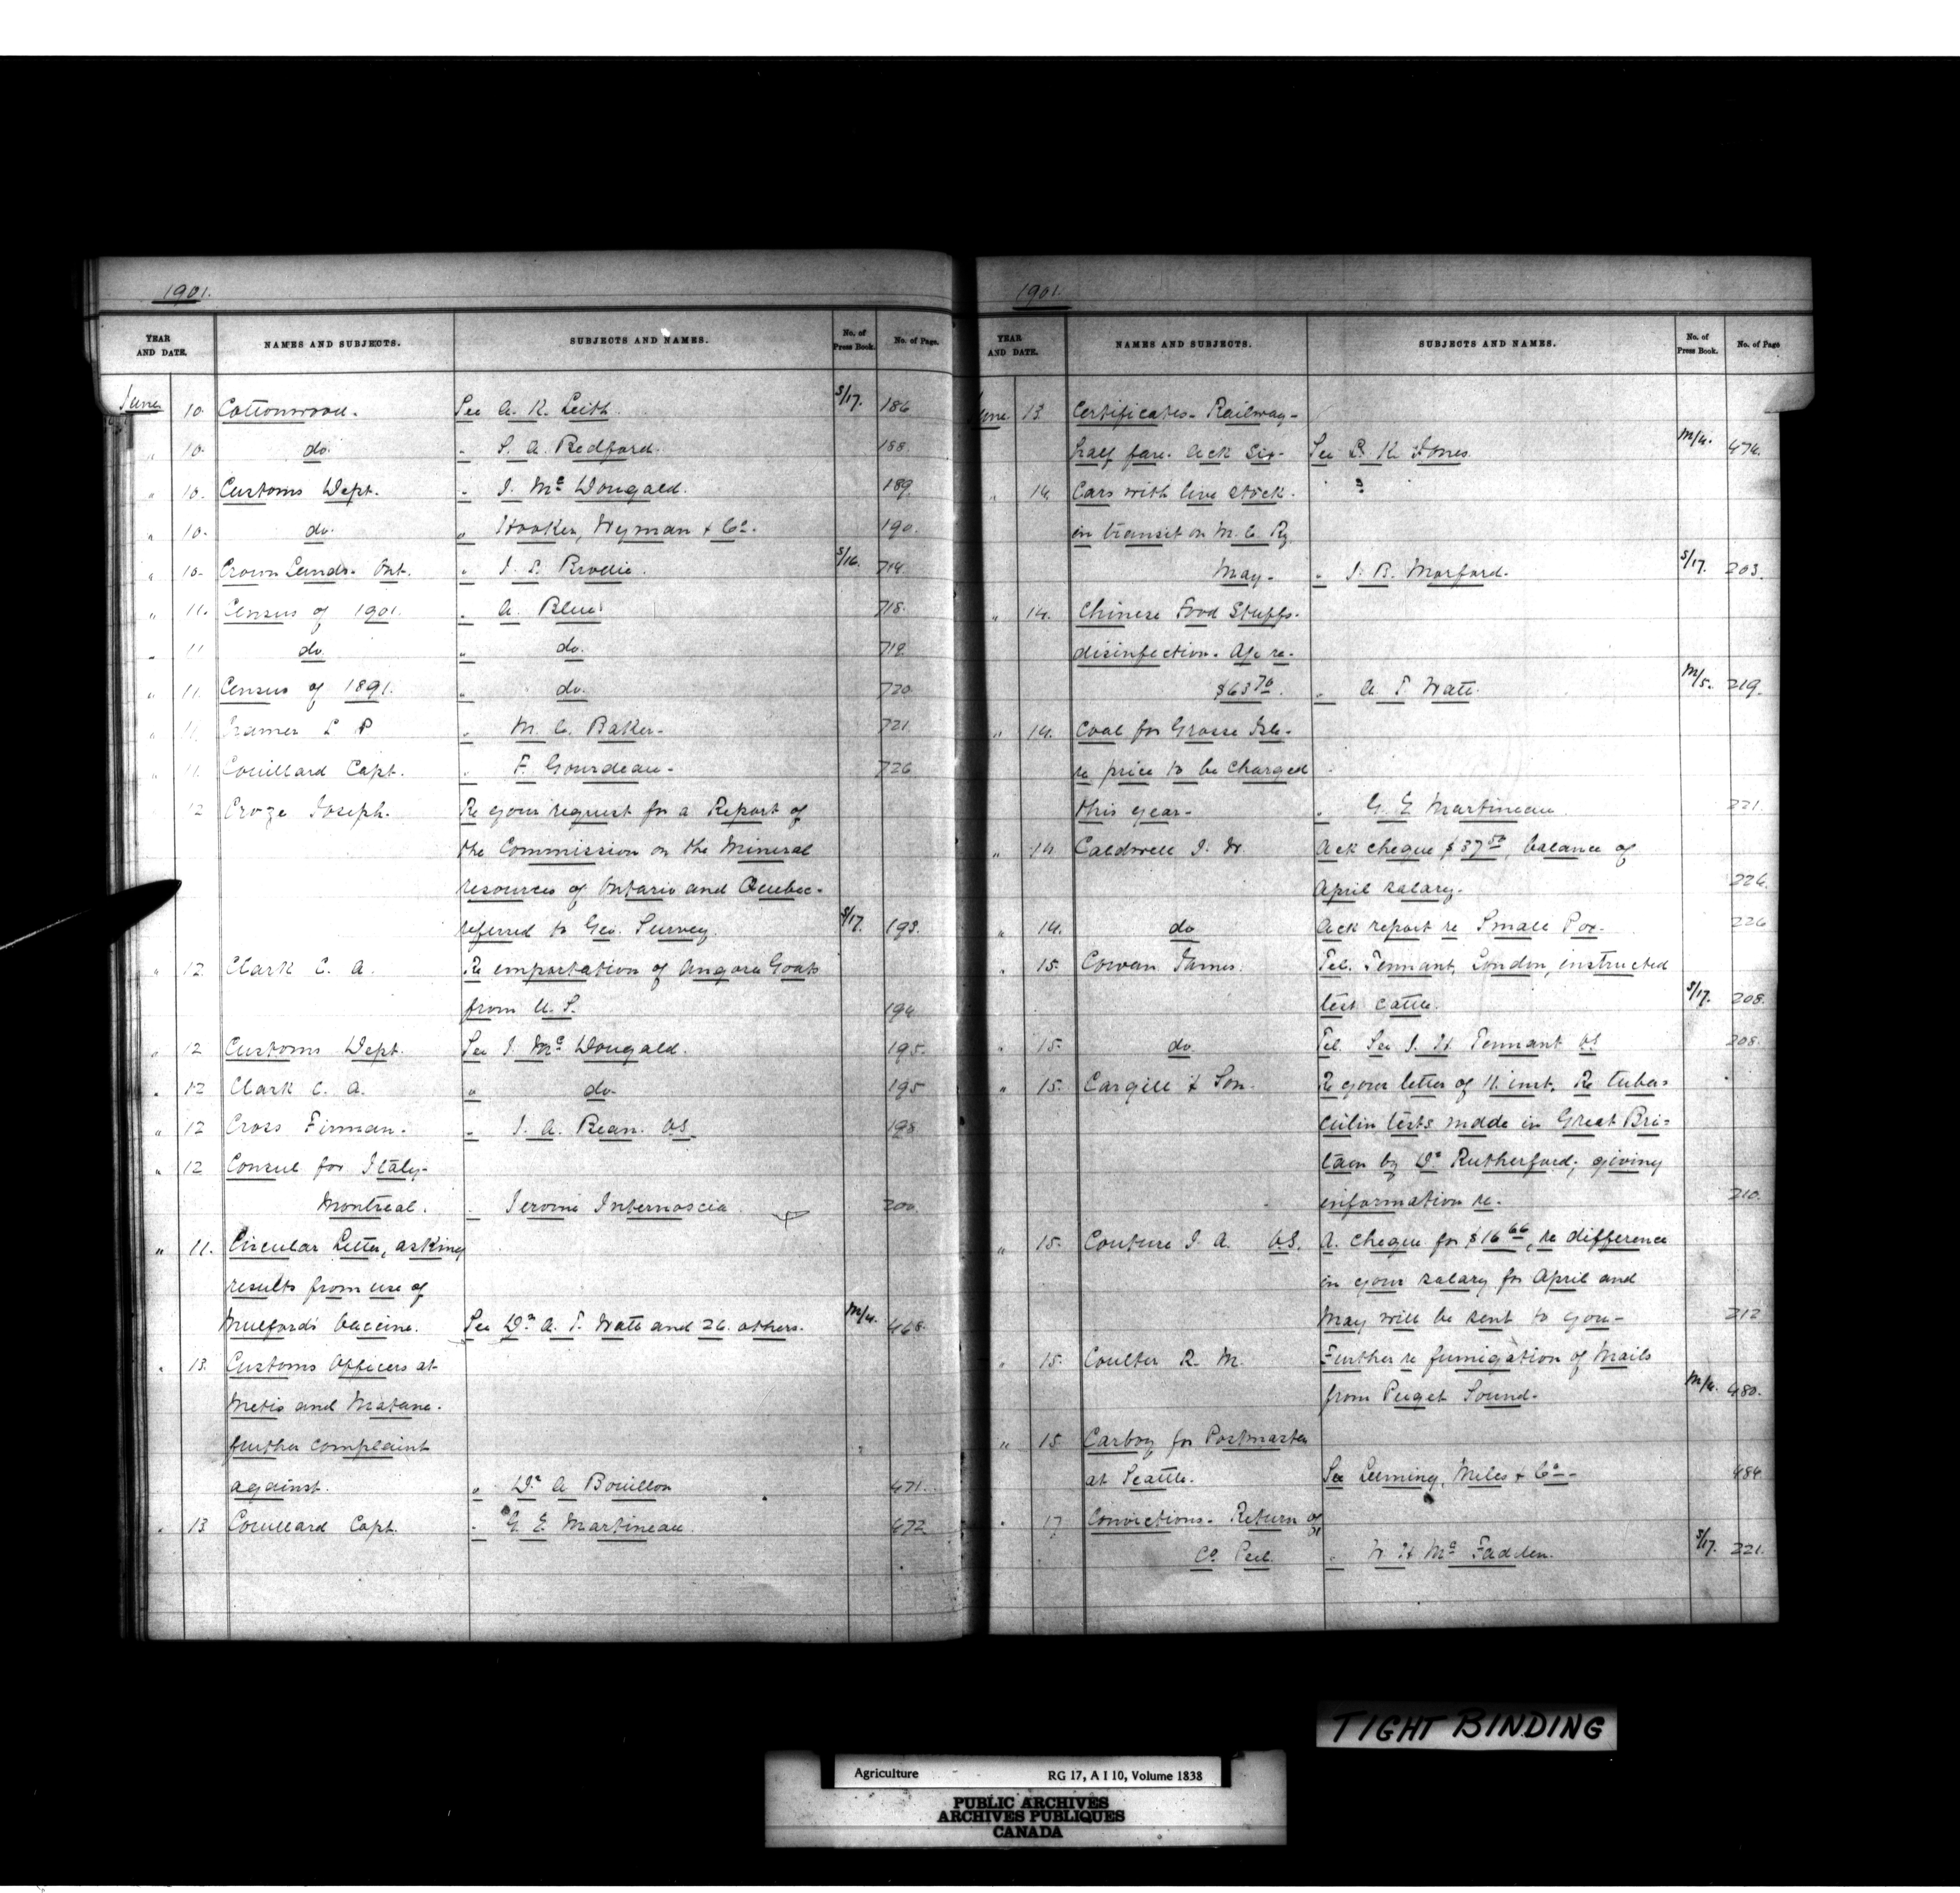 1901.
YEAR AND DATE. NAMES AND SUBJECTS. SUBJECTS AND NAMES. No. of Press Book. No. of Page.
June 10. Cottonwood. See A. K. Leith. S/17. 186
" 10. do. " S. A. Bedford. 188.
" 10. Customs Dept. " J. Mc Dougald. 189
" 10. do. " Hooker, Wyman & Co. 190.
" 10. Crown Lands. Ont. " J. S. Brodie. S/16. 714.
" 11. Census of 1901. " A. Blue. 718.
" 11 do. " do. 719.
" 11. Census of 1891. " do. 720
" 11. Cramer L P " M. C. Baker. 721
" 11. Couillard Capt. " F. Gourdeau. 726
12 Croze Joseph. Re your request for a Report of
the Commission on the Mineral
resources of Ontario and Quebec.
referred to Geo. Survey. S/17. 193.
" 12. Clark C. A. Re importation of Angora Goats
from U. S. 194
" 12 Customs Dept. See J. Mc Dougald. 195.
" 12 Clark C. A. " do. 195
" 12 Cross Firman. " J. A. Bean. VS. 198
" 12 Consul for Italy.
Montreal. " Jerome Internoscia. 200.
" 11. Circular Letter, asking
results from use of
Mulford's Vaccine. See Dr. A. T. Watt and 26. others. M/4. 468.
" 13. Customs Officers at
Metis and Matane.
further complaint
against. " Dr A Bouillon 471.
" 13 Couillard Capt. " G. E. Martineau. 472
1901.
YEAR AND DATE. NAMES AND SUBJECTS. SUBJECTS AND NAMES. No. of Press Book. No. of Page
June 13. Certificates. Railway.
half fare. Ack See B. K. Jones. M/4. 474.
" 14. Cars with live stock.
in transit on M. C. Ry
May. " J. B. Morford. S/17. 203.
" 14. Chinese Food Stuffs.
disinfection. A/c re.
$63 70. " A T Watt. M/5. 219.
" 14. Coal for Grosse Isle.
re price to be charged
this year. " G. E Martineau 221.
" 14. Caldwell J. W. Ack cheque $37 50, balance of
April salary. 226.
" 14. do Ack report re Small Pox. 226
" 15. Cowan James. Tel. Tennant, London, instructed
test cattle. S/17. 208.
" 15. do. Tel. See J. H Tennant VS 208.
" 15. Cargill & Son. Re your letter of 11. inst. Re tuber=
culin tests made in Great Bri=
tain by Dr Rutherford, giving
information re. 210.
" 15. Couture J. A. V.S. A. cheque for $16 66, re difference
in your salary for April and
May will be sent to you. 212
" 15. Coulter R. M. Further re fumigation of Mails
from Puget Sound. M/4. 480.
" 15 Carboy for Postmaster
at Seattle. See Leeming, Miles & Co. 484
" 17 Convictions. Return of
Co. Peel. " W. H Mc Fadden. S/17. 221.
TIGHT BINDING
Agriculture RG 17, A I 10, Volume 1838
PUBLIC ARCHIVES
ARCHIVES PUBLIQUES
CANADA